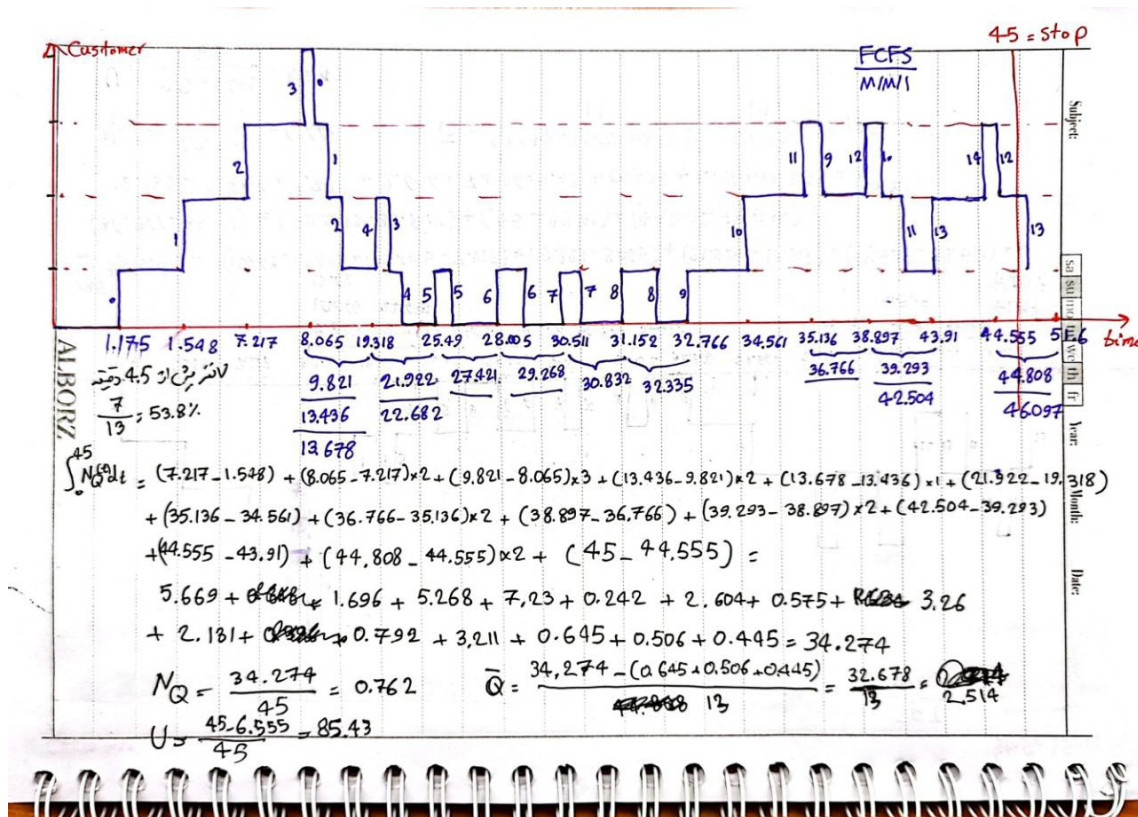 45 = stop
Customer
FCFS
M/M/1
Subject:
3 0
2 1 11 9 12 10 14 12
1 4 3 2 10 11 13 13
0 4 5 5 6 6 7 7 8 8 9
sa su mo tu we th fr
1.175 1.548 7.217 8.065 19.318 25.49 28.005 30.511 31.152 32.766 34.561 35.136 38.897 43.91 44.555 51.6 time
9.821 21.922 27.421 29.268 30.832 32.335 36.766 39.293 44.808
13.436 22.682 42.504 46.097
13.678
از 4.5 دقیقه
7/13 = 53.8%
ALBORZ
Year:
Month:
Date:
∫₀⁴⁵ N_Q(t) dt = (7.217-1.548) + (8.065-7.217)×2 + (9.821-8.065)×3 + (13.436-9.821)×2 + (13.678-13.436)×1 + (21.922-19.318)
+ (35.136-34.561) + (36.766-35.136)×2 + (38.897-36.766) + (39.293-38.897)×2 + (42.504-39.293)
+(44.555-43.91) + (44.808-44.555)×2 + (45-44.555) =
5.669 + 1.696 + 5.268 + 7,23 + 0.242 + 2.604 + 0.575 + 3.26
+ 2.131 + 0.792 + 3,211 + 0.645 + 0.506 + 0.445 = 34.274
N_Q = 34.274/45 = 0.762 Q̄ = 34,274-(0.645+0.506+0.445)/13 = 32.678/13 = 2.514
U = 45-6.555/45 = 85.43